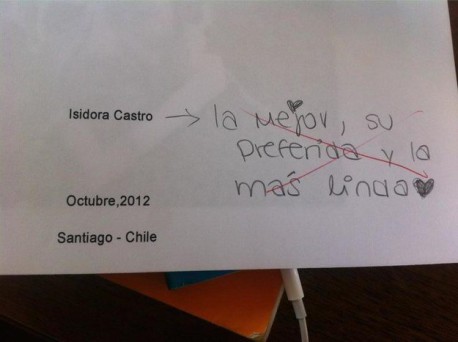 Isidora Castro → la mejor, su
preferida y la
más linda♥
Octubre,2012
Santiago - Chile